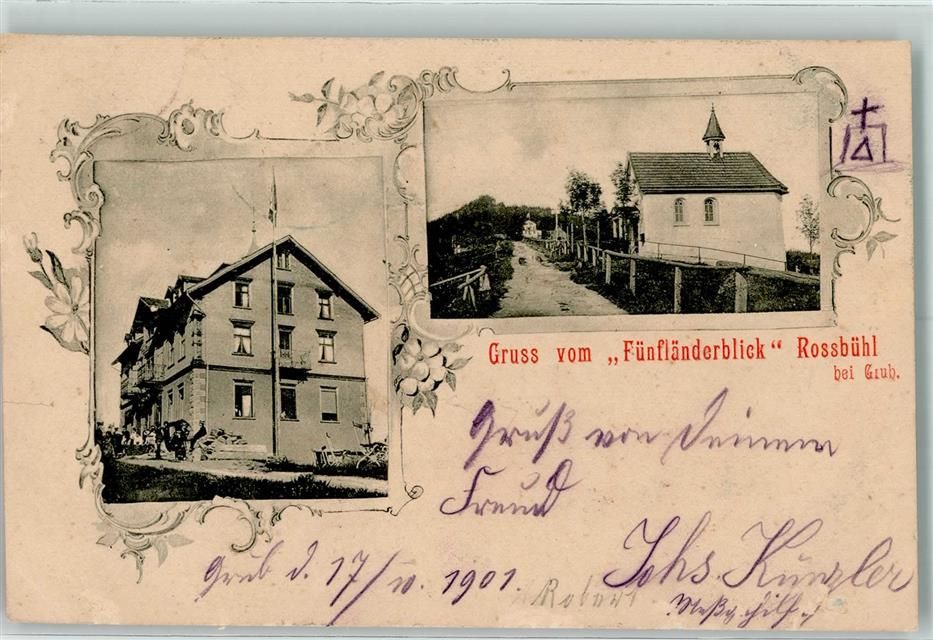 Gruss vom „Fünfländerblick“ Rossbühl
bei Grub.
Gruß von Deinem
Freund
Johs. Künzler
Grub d. 17/IV. 1901.
Robert